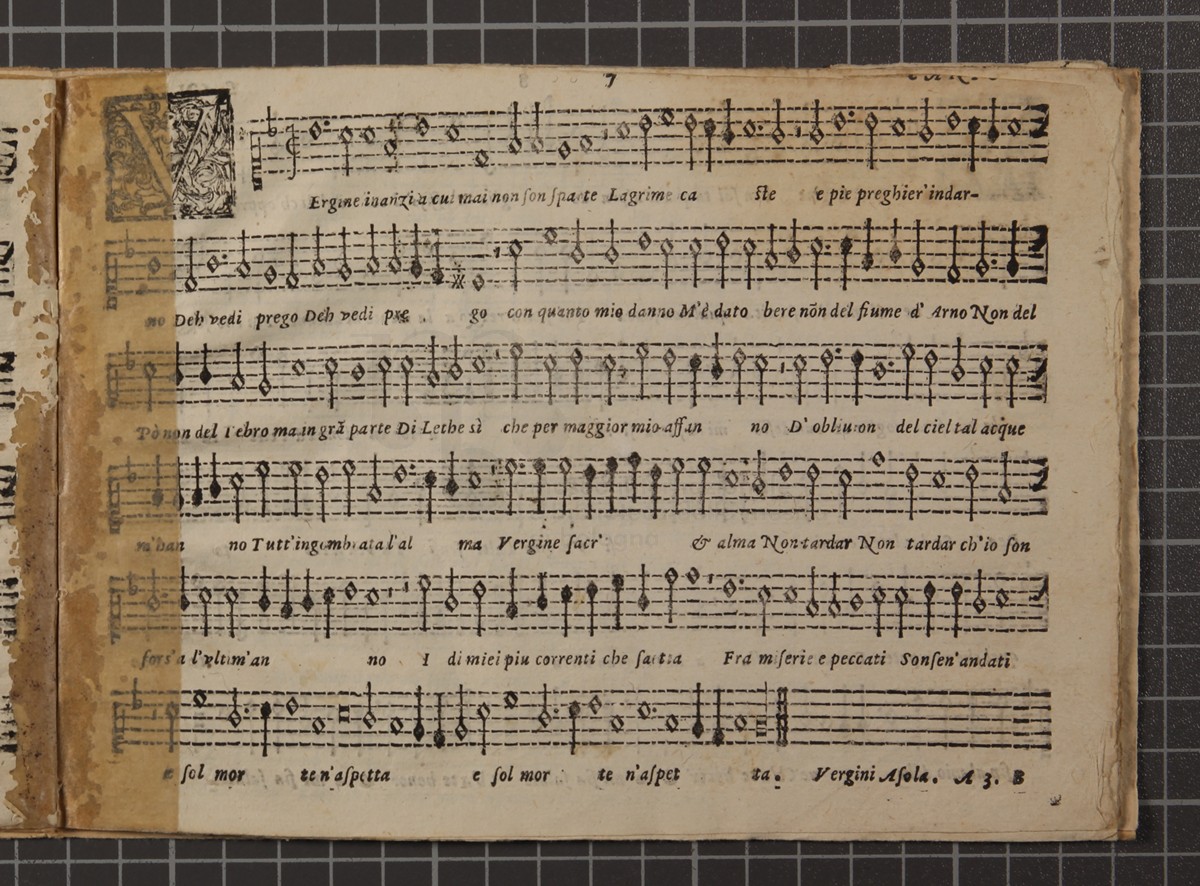 7
V Ergine inanzi a cui mai non son sparte Lagrim ca ste e pie preghier' indar-
no Deh vedi prego Deh vedi pre go con quanto mio danno M'è dato bere nõn del fiume d' Arno Non del
Pò non del Tebro ma in grã parte Di Lethe sì che per maggior mio affan no D' obliuion del ciel tal acque
m'han no Tutt'ingombrata l'al ma Vergine sacr' & alma Non tardar Non tardar ch'io son
fors'a l'vltim'an no I di miei piu correnti che saetta Fra miserie e peccati Sonsen'andati
e sol mor te n'aspetta e sol mor te n'aspet ta. Vergini Asola. A 3. B